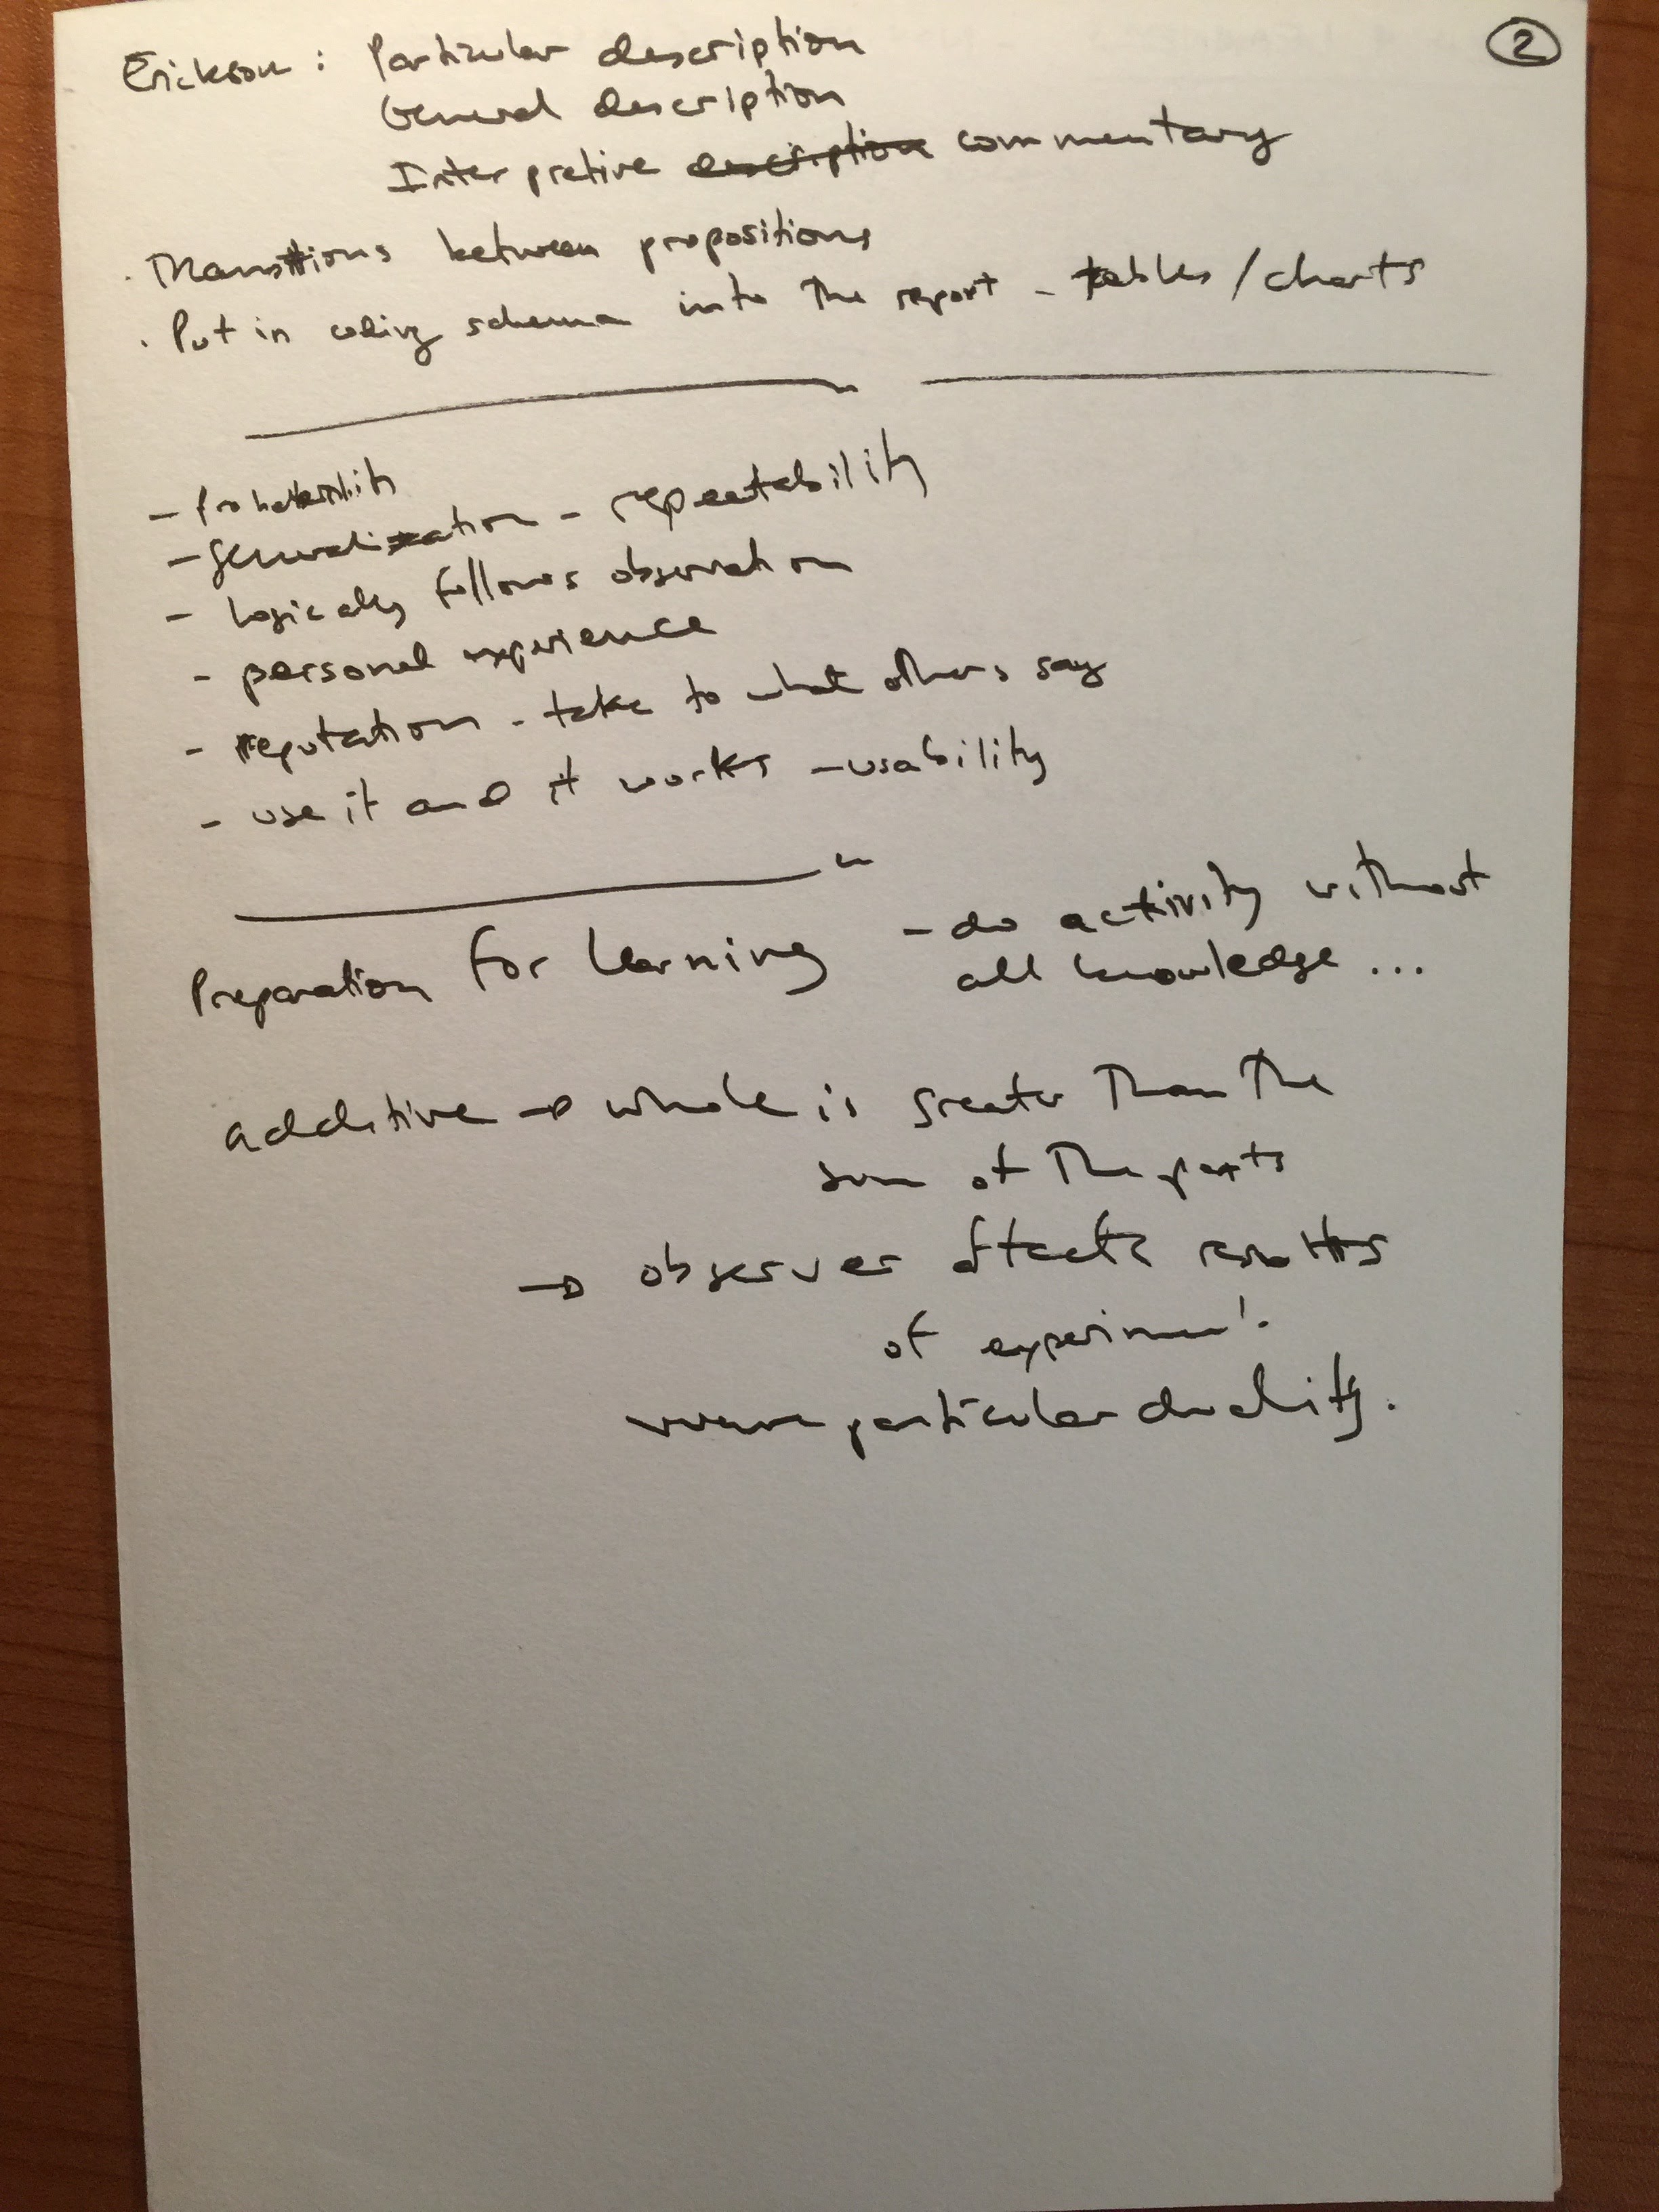 ②
Erickson : Particular description
General description
Interpretive description commentary
· Transitions between propositions
· Put in coding schema into the report - tables / charts
- Probability
- generalization - repeatability
- logically follows observation
- personal experience
- reputation - take to what others say
- use it and it works - usability
Preparation for learning - do activity without
all knowledge ...
additive → whole is greater than the
sum of the parts
→ observer effects results
of experiment.
particular duality.